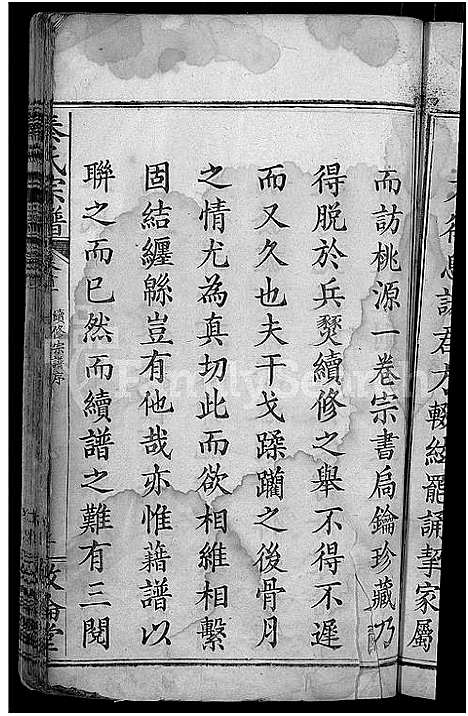 輟絃罷誦挈家屬
而訪桃源一卷宗書扃鑰珍藏乃
得脫於兵燹續修之舉不得不遲
而又久也夫干戈蹂躪之後骨月
之情尤為真切此而欲相維相繫
固結纏緜豈有他哉亦惟藉譜以
聯之而已然而續譜之難有三閱
秦氏宗譜
續修宗譜序
敦倫堂
FamilySearch